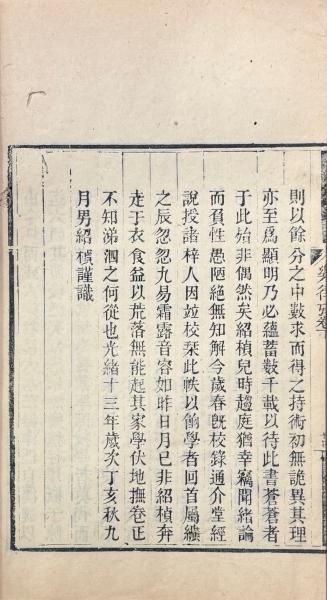 則以餘分之中數求而得之持術初無詭異其理
亦至爲顯明乃必蘊蓄數千載以待此書蒼蒼者
于此始非偶然矣紹楨兒時趨庭猶幸竊聞緒論
而負性愚陋絕無知解今歲春旣校錄通介堂經
說授諸梓人因竝校栞此帙以餉學者回首屬纊
之辰忽忽九易霜露音容如昨日月已非紹楨奔
走于衣食益以荒落無能起其家學伏地撫卷正
不知涕泗之何從也光緒十三年歲次丁亥秋九
月男紹楨謹識